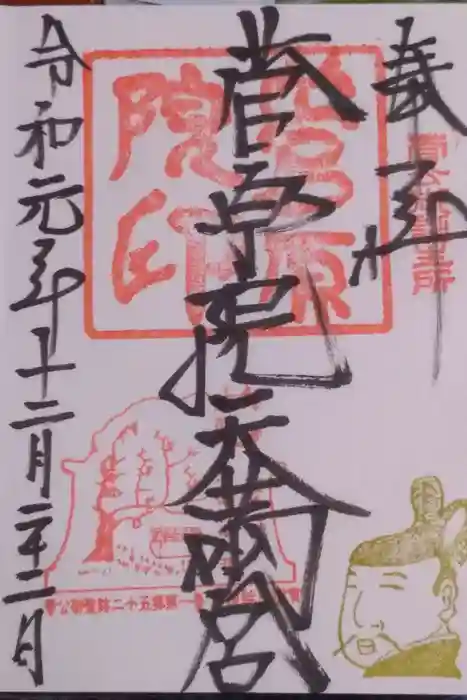 奉拝
菅公御誕生所
菅原院天満宮
菅原
院印
令和元年十二月二十二日